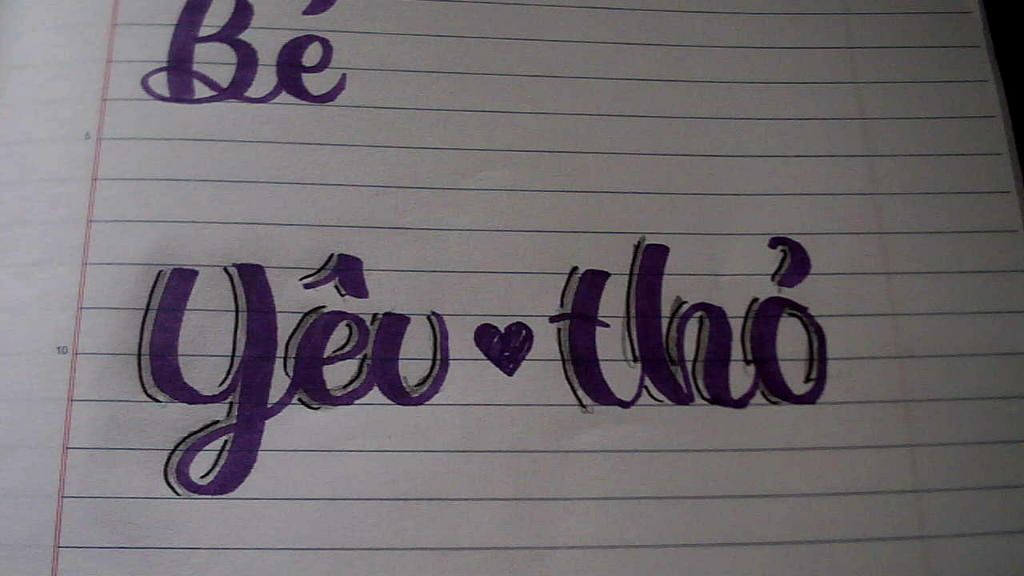 Bé
5
yêu ♥ thỏ
10